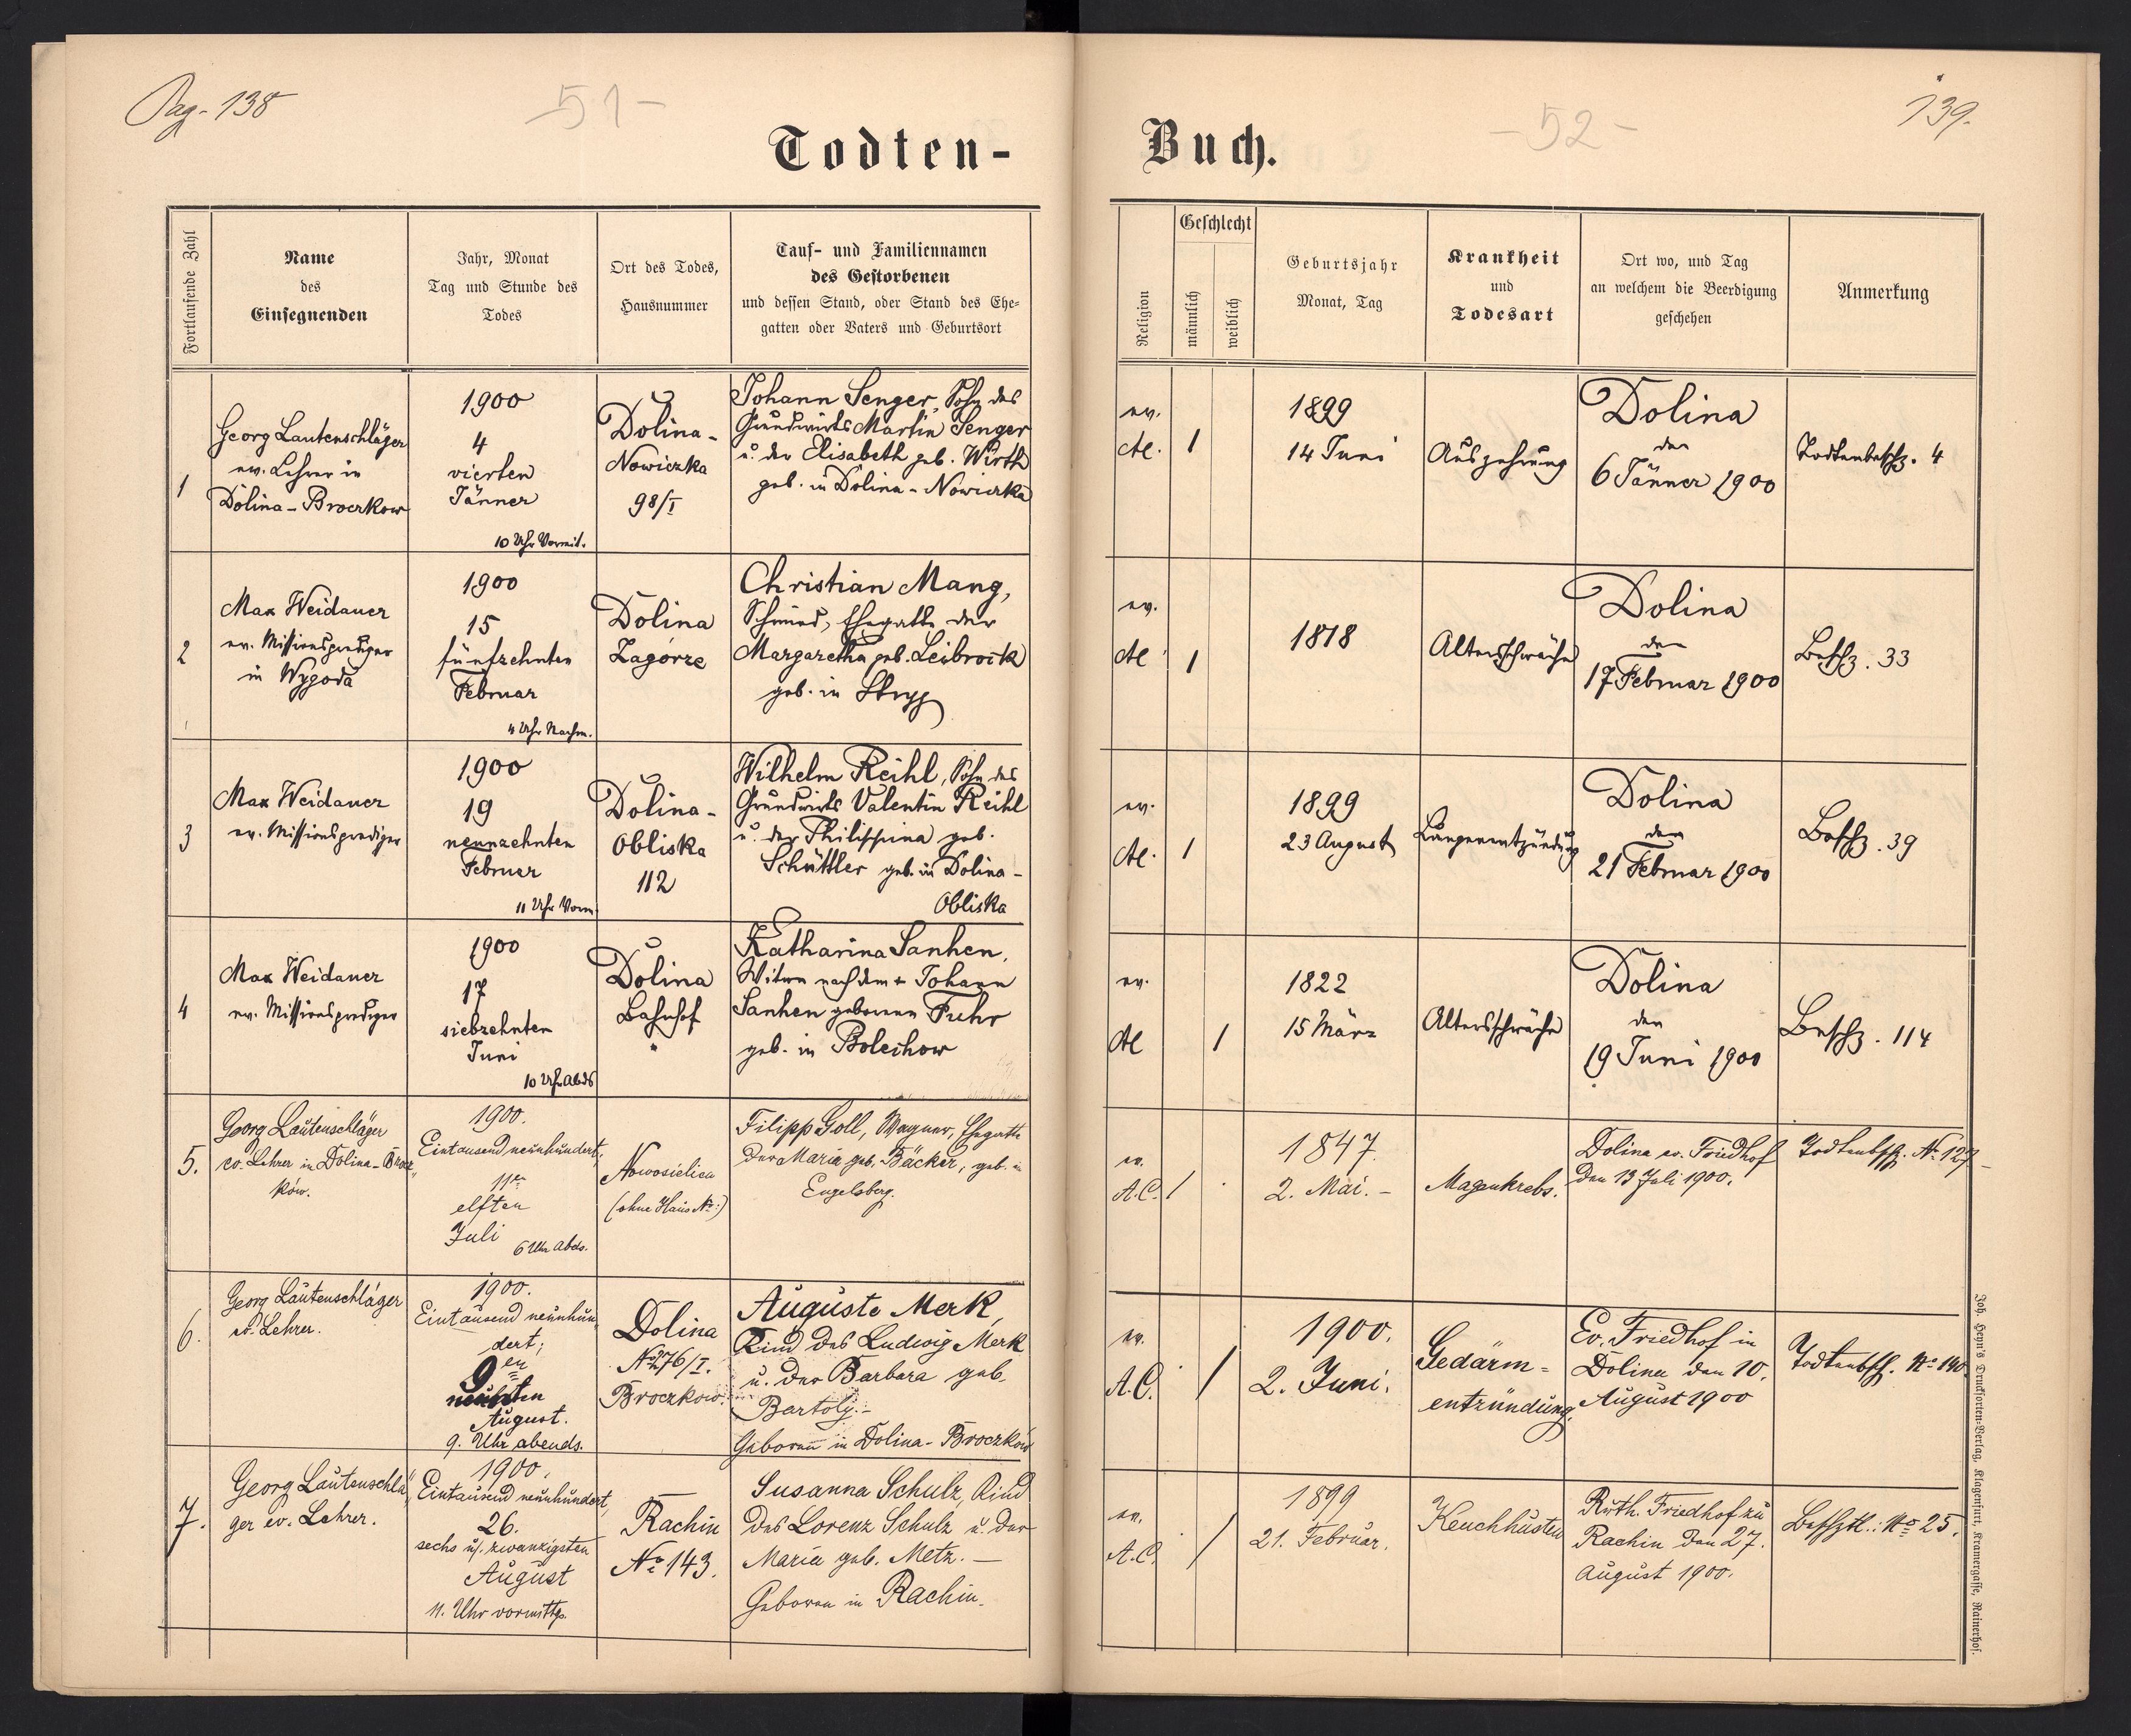 Pag. 138
51
Todten-
Fortlaufende Zahl
Name
des
Einsegnenden
Jahr, Monat
Tag und Stunde des
Todes
Ort des Todes,
Hausnummer
Tauf- und Familiennamen
des Gestorbenen
und dessen Stand, oder Stand des Ehe-
gatten oder Vaters und Geburtsort
1
Georg Lautenschläger
ev. Lehrer in
Dolina-Broczkow
1900
4
vierten
Jänner
10 Uhr Vormit.
Dolina-
Nowiczka
98/I
Johann Senger, Sohn des
Grundwirts Martin Senger
u. der Elisabeth geb. Wirth
geb. in Dolina-Nowiczka
2
Max Weidauer
ev. Missionsprediger
in Wygoda
1900
15
fünfzehnten
Februar
4 Uhr Nachm.
Dolina
Zagórze
Christian Mang,
Schmied, Ehegatte der
Margaretha geb. Leibrock
geb. in Stryj
3
Max Weidauer
ev. Missionsprediger
1900
19
neunzehnten
Februar
11 Uhr Vorm.
Dolina-
Obliska
112
Wilhelm Reihl, Sohn des
Grundwirts Valentin Reihl
u. der Philippina geb.
Schüttler geb. in Dolina-
Obliska
4
Max Weidauer
ev. Missionsprediger
1900
17
siebzehnten
Juni
10 Uhr Abds
Dolina
Bahnhof
Katharina Sanhen,
Witwe nach dem + Johann
Sanhen geborene Fuhr
geb. in Bolechow
5.
Georg Lautenschläger
ev. Lehrer in Dolina-Brocz„
ków.
1900.
Eintausend neunhundert,
11ten
elften
Juli
6 Uhr Abds.
Nowosielica
(ohne Haus No:)
Filipp Goll, Wagner, Ehegatte
der Maria geb. Bäcker, geb. in
Engelsberg.
6.
Georg Lautenschläger
ev. Lehrer.
1900.
Eintausend neunhun„
dert;
9en
neunten
August.
9. Uhr abends.
Dolina
No 276/I.
Broczkow.
Auguste Merk,
Kind des Ludwig Merk
u. der Barbara geb.
Bartoly.-
Geboren in Dolina-Broczków
7.
Georg Lautenschlä„
ger ev. Lehrer.
1900.
Eintausend neunhundert,
26.
sechs u. zwanzigsten
August
11. Uhr vormittg.
Rachin
No 143.
Susanna Schulz, Kind
des Lorenz Schulz u. der
Maria geb. Metz. —
Geboren in Rachin.
139.
- 52 -
Buch.
Religion
Geschlecht
männlich
weiblich
Geburtsjahr
Monat, Tag
Krankheit
und
Todesart
Ort wo, und Tag
an welchem die Beerdigung
geschehen
Anmerkung
ev.
AC.
1
1899
14 Juni
Auszehrung
Dolina
den
6 Jänner 1900
Todtenbeschz. 4
ev.
AC
1
1818
Altersschwäche
Dolina
den
17 Februar 1900
Beschz. 33
ev.
AC.
1
1899
23 August
Lungenentzündung
Dolina
den
21 Februar 1900
Beschz. 39
ev.
AC
1
1822
15 März
Altersschwäche
Dolina
den
19 Juni 1900
Beschz. 114
ev.
A.C.
/
1847.
2. Mai. -
Magenkrebs.
Dolina ev. Friedhof
den 13 Juli 1900.
Todtenbsch. No 127
ev.
A.C.
/
1900.
2. Juni.
Gedärm-
entzündung.
Ev. Friedhof in
Dolina den 10.
August 1900
Todtenbsch. No 140
ev.
A.C.
/
1899
21. Februar.
Keuchhusten
Ruth. Friedhof zu
Rachin den 27.
August 1900.
Beschztl.: No 25.
Joh. Heyn's Drucksorten-Verlag, Klagenfurt, Kramergasse, Rainerhof.